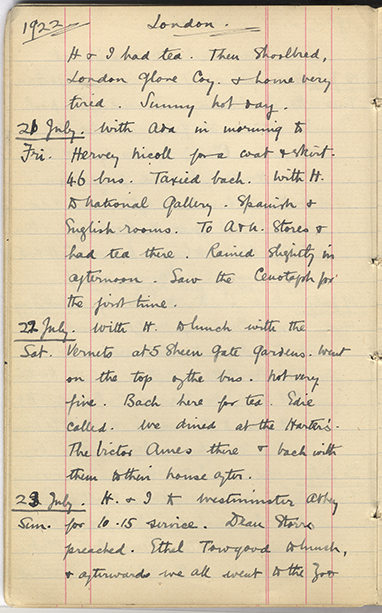 1922 London.
H & I had tea. Then Shoolbred,
London Glove Coy. & home very
tired. Sunny hot day.
21 July. With Ada in morning to
Fri. Hervey Nicoll for a coat & skirt.
46 bus. Taxied back. With H.
to National Gallery. Spanish &
English rooms. To A & N. Stores &
had tea there. Rained slightly in
afternoon. Saw the Cenotaph for
the first time.
22 July. With H. to lunch with the
Sat. Vernets at 5 Sheen Gate Gardens. Went
on the top of the bus. Not very
fine. Back here for tea. Edie
called. We dined at the Harters'.
The Victor Ames there & back with
them to their house after.
23 July. H. & I to Westminster Abbey
Sun. for 10.15 service. Dean
preached. Ethel Towgood to lunch,
& afterwards we all went to the Zoo